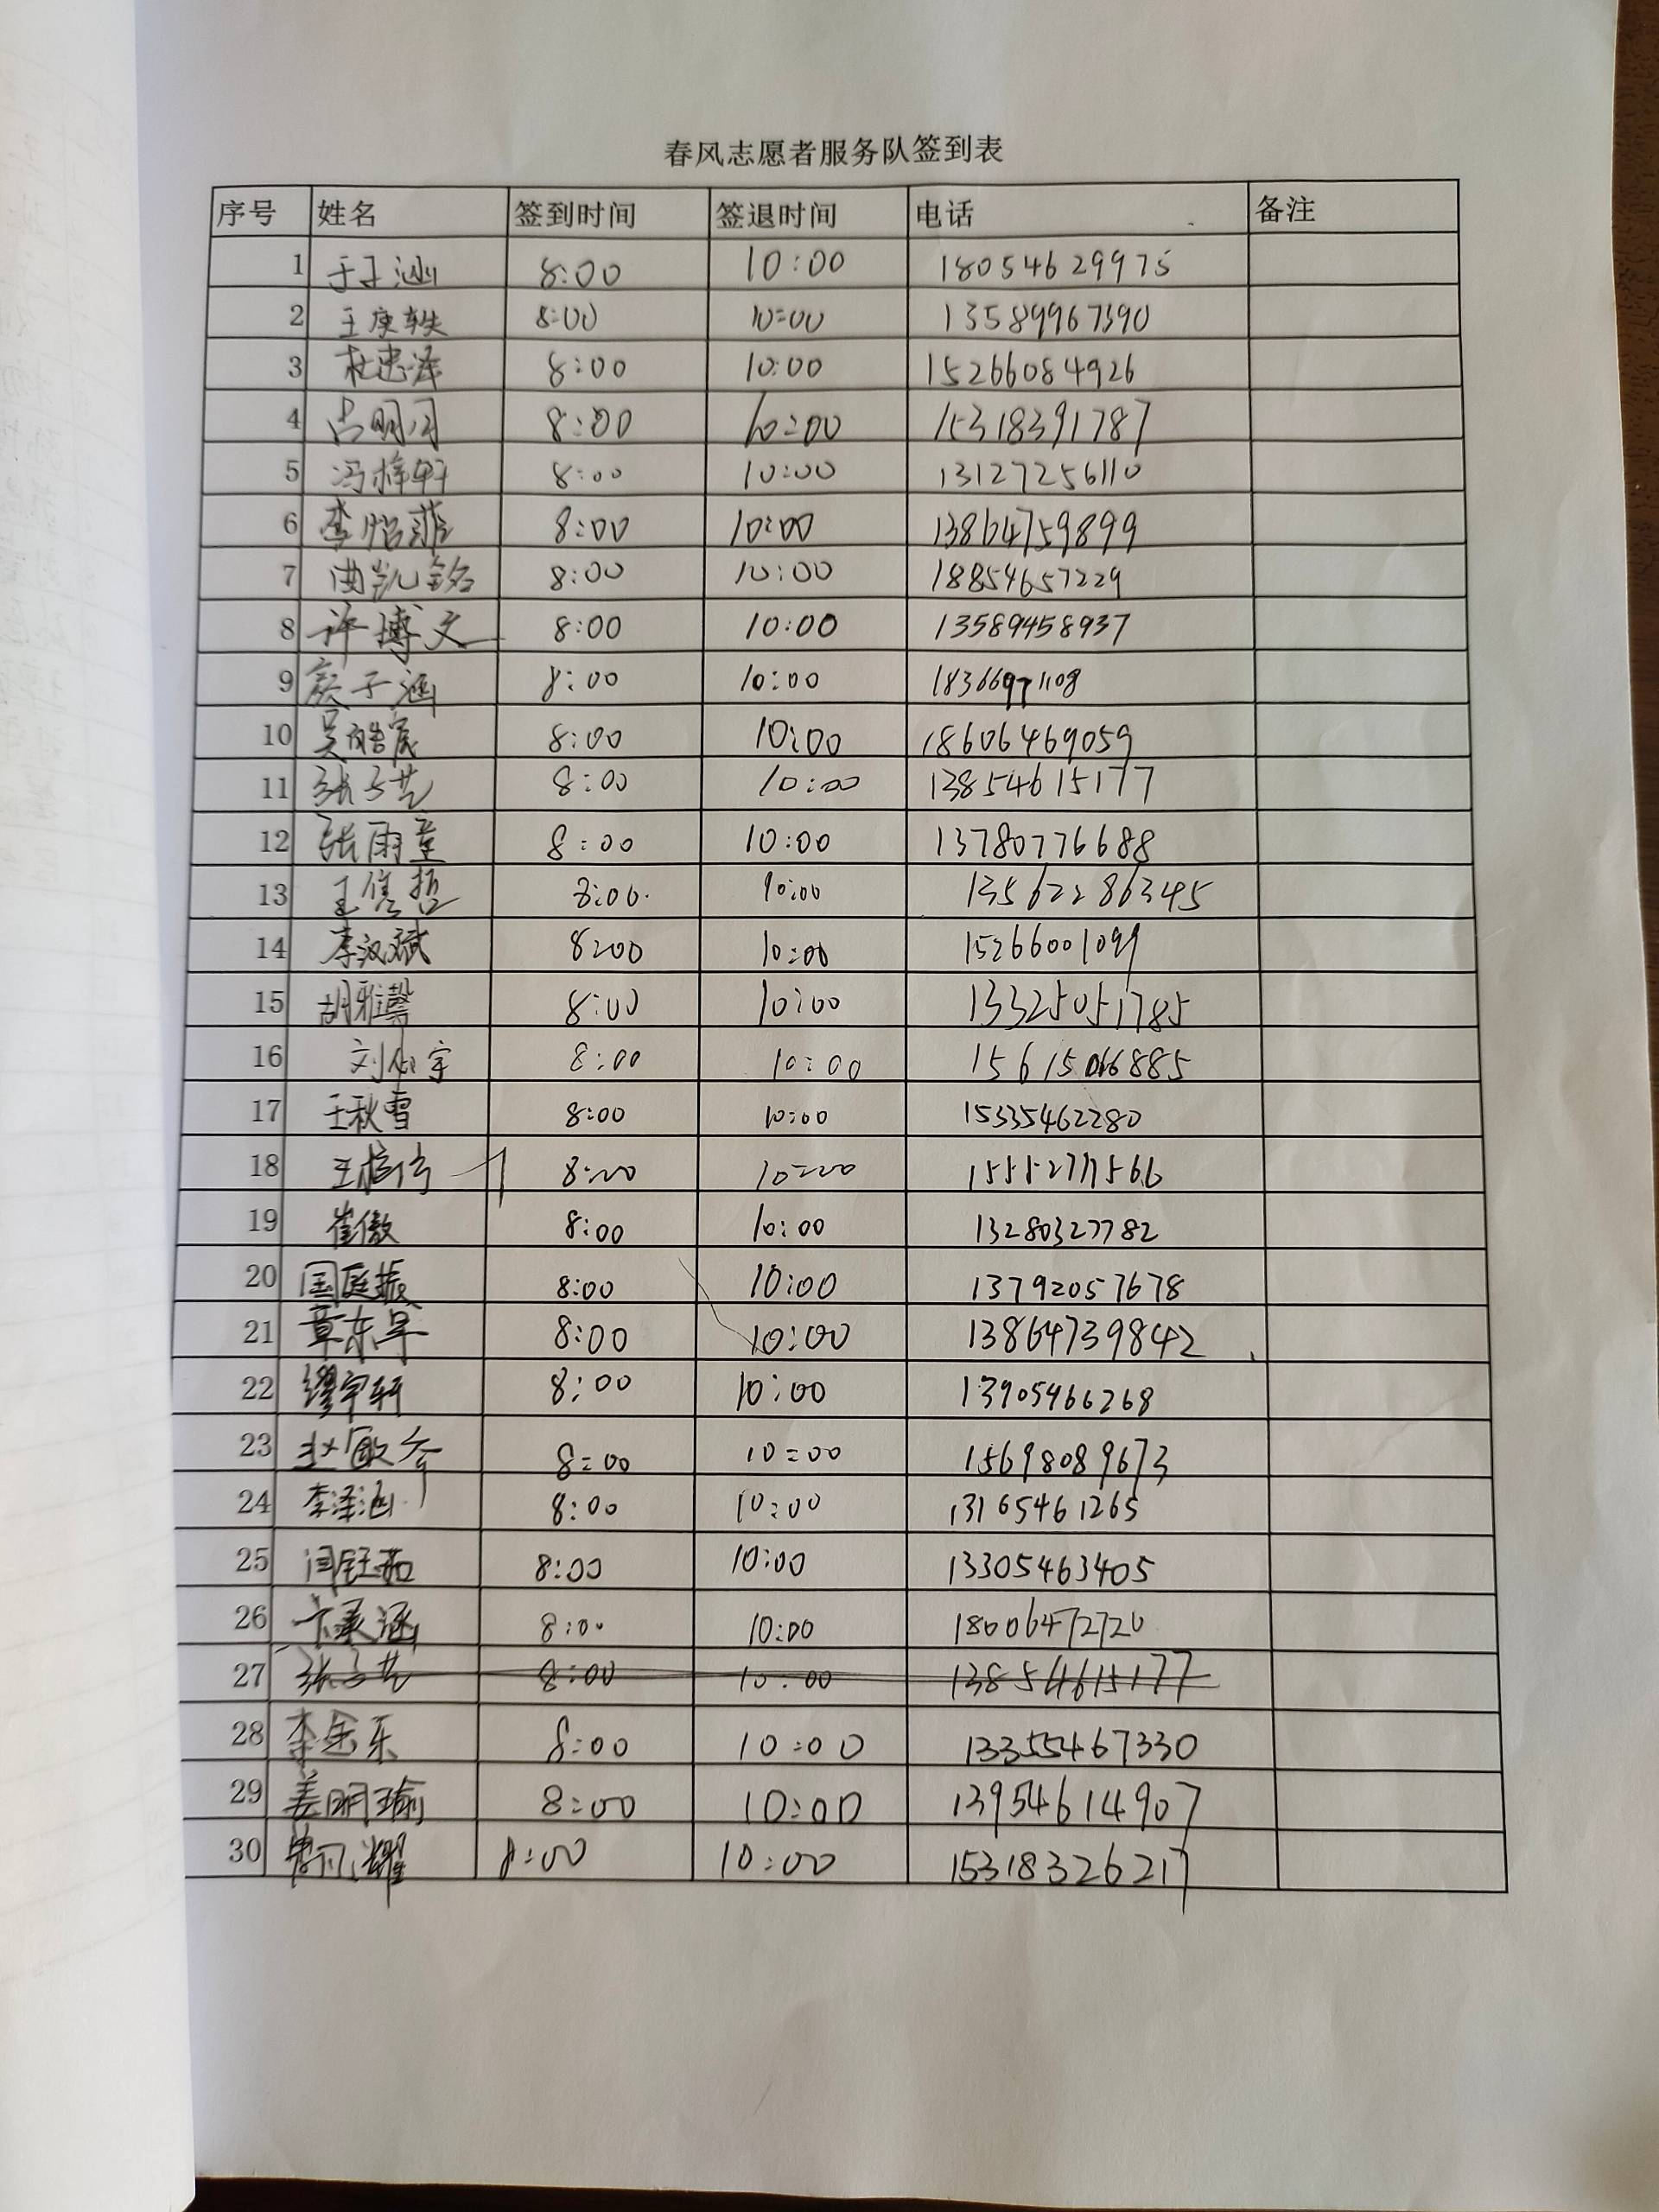 春风志愿者服务队签到表
序号 姓名 签到时间 签退时间 电话 备注
1 于子涵 8:00 10:00 18054629975
2 王庚轶 8:00 10:00 13589967390
3 杜忠泽 8:00 10:00 15266084926
4 吕明月 8:00 10:00 15318391787
5 冯梓轩 8:00 10:00 13127256110
6 李怡菲 8:00 10:00 13864759899
7 曲凯铭 8:00 10:00 18854657229
8 许博文 8:00 10:00 13589458937
9 颜子涵 8:00 10:00 18366971108
10 吴皓宸 8:00 10:00 18606469059
11 张子艺 8:00 10:00 13854615177
12 张雨童 8:00 10:00 13780776688
13 王隽哲 8:00 10:00 13562286345
14 李汶斌 8:00 10:00 15266001099
15 胡雅馨 8:00 10:00 13325051785
16 刘 宇 8:00 10:00 15615066885
17 王秋雪 8:00 10:00 15335462280
18 王 8:00 10:00
19 崔傲 8:00 10:00 13280327782
20 国庭振 8:00 10:00 13792057678
21 章东旱 8:00 10:00 13864739842
22 缪宇轩 8:00 10:00 13905466268
23 赵 8:00 10:00 15698089673
24 李泽涵 8:00 10:00 13165461265
25 闫钰茹 8:00 10:00 13305463405
26 卞承涵 8:00 10:00 18006472720
27 张子艺 8:00 10:00 13854615177
28 李金乐 8:00 10:00 13355467330
29 姜明瑜 8:00 10:00 13954614907
30 耀 8:00 10:00 15318326217